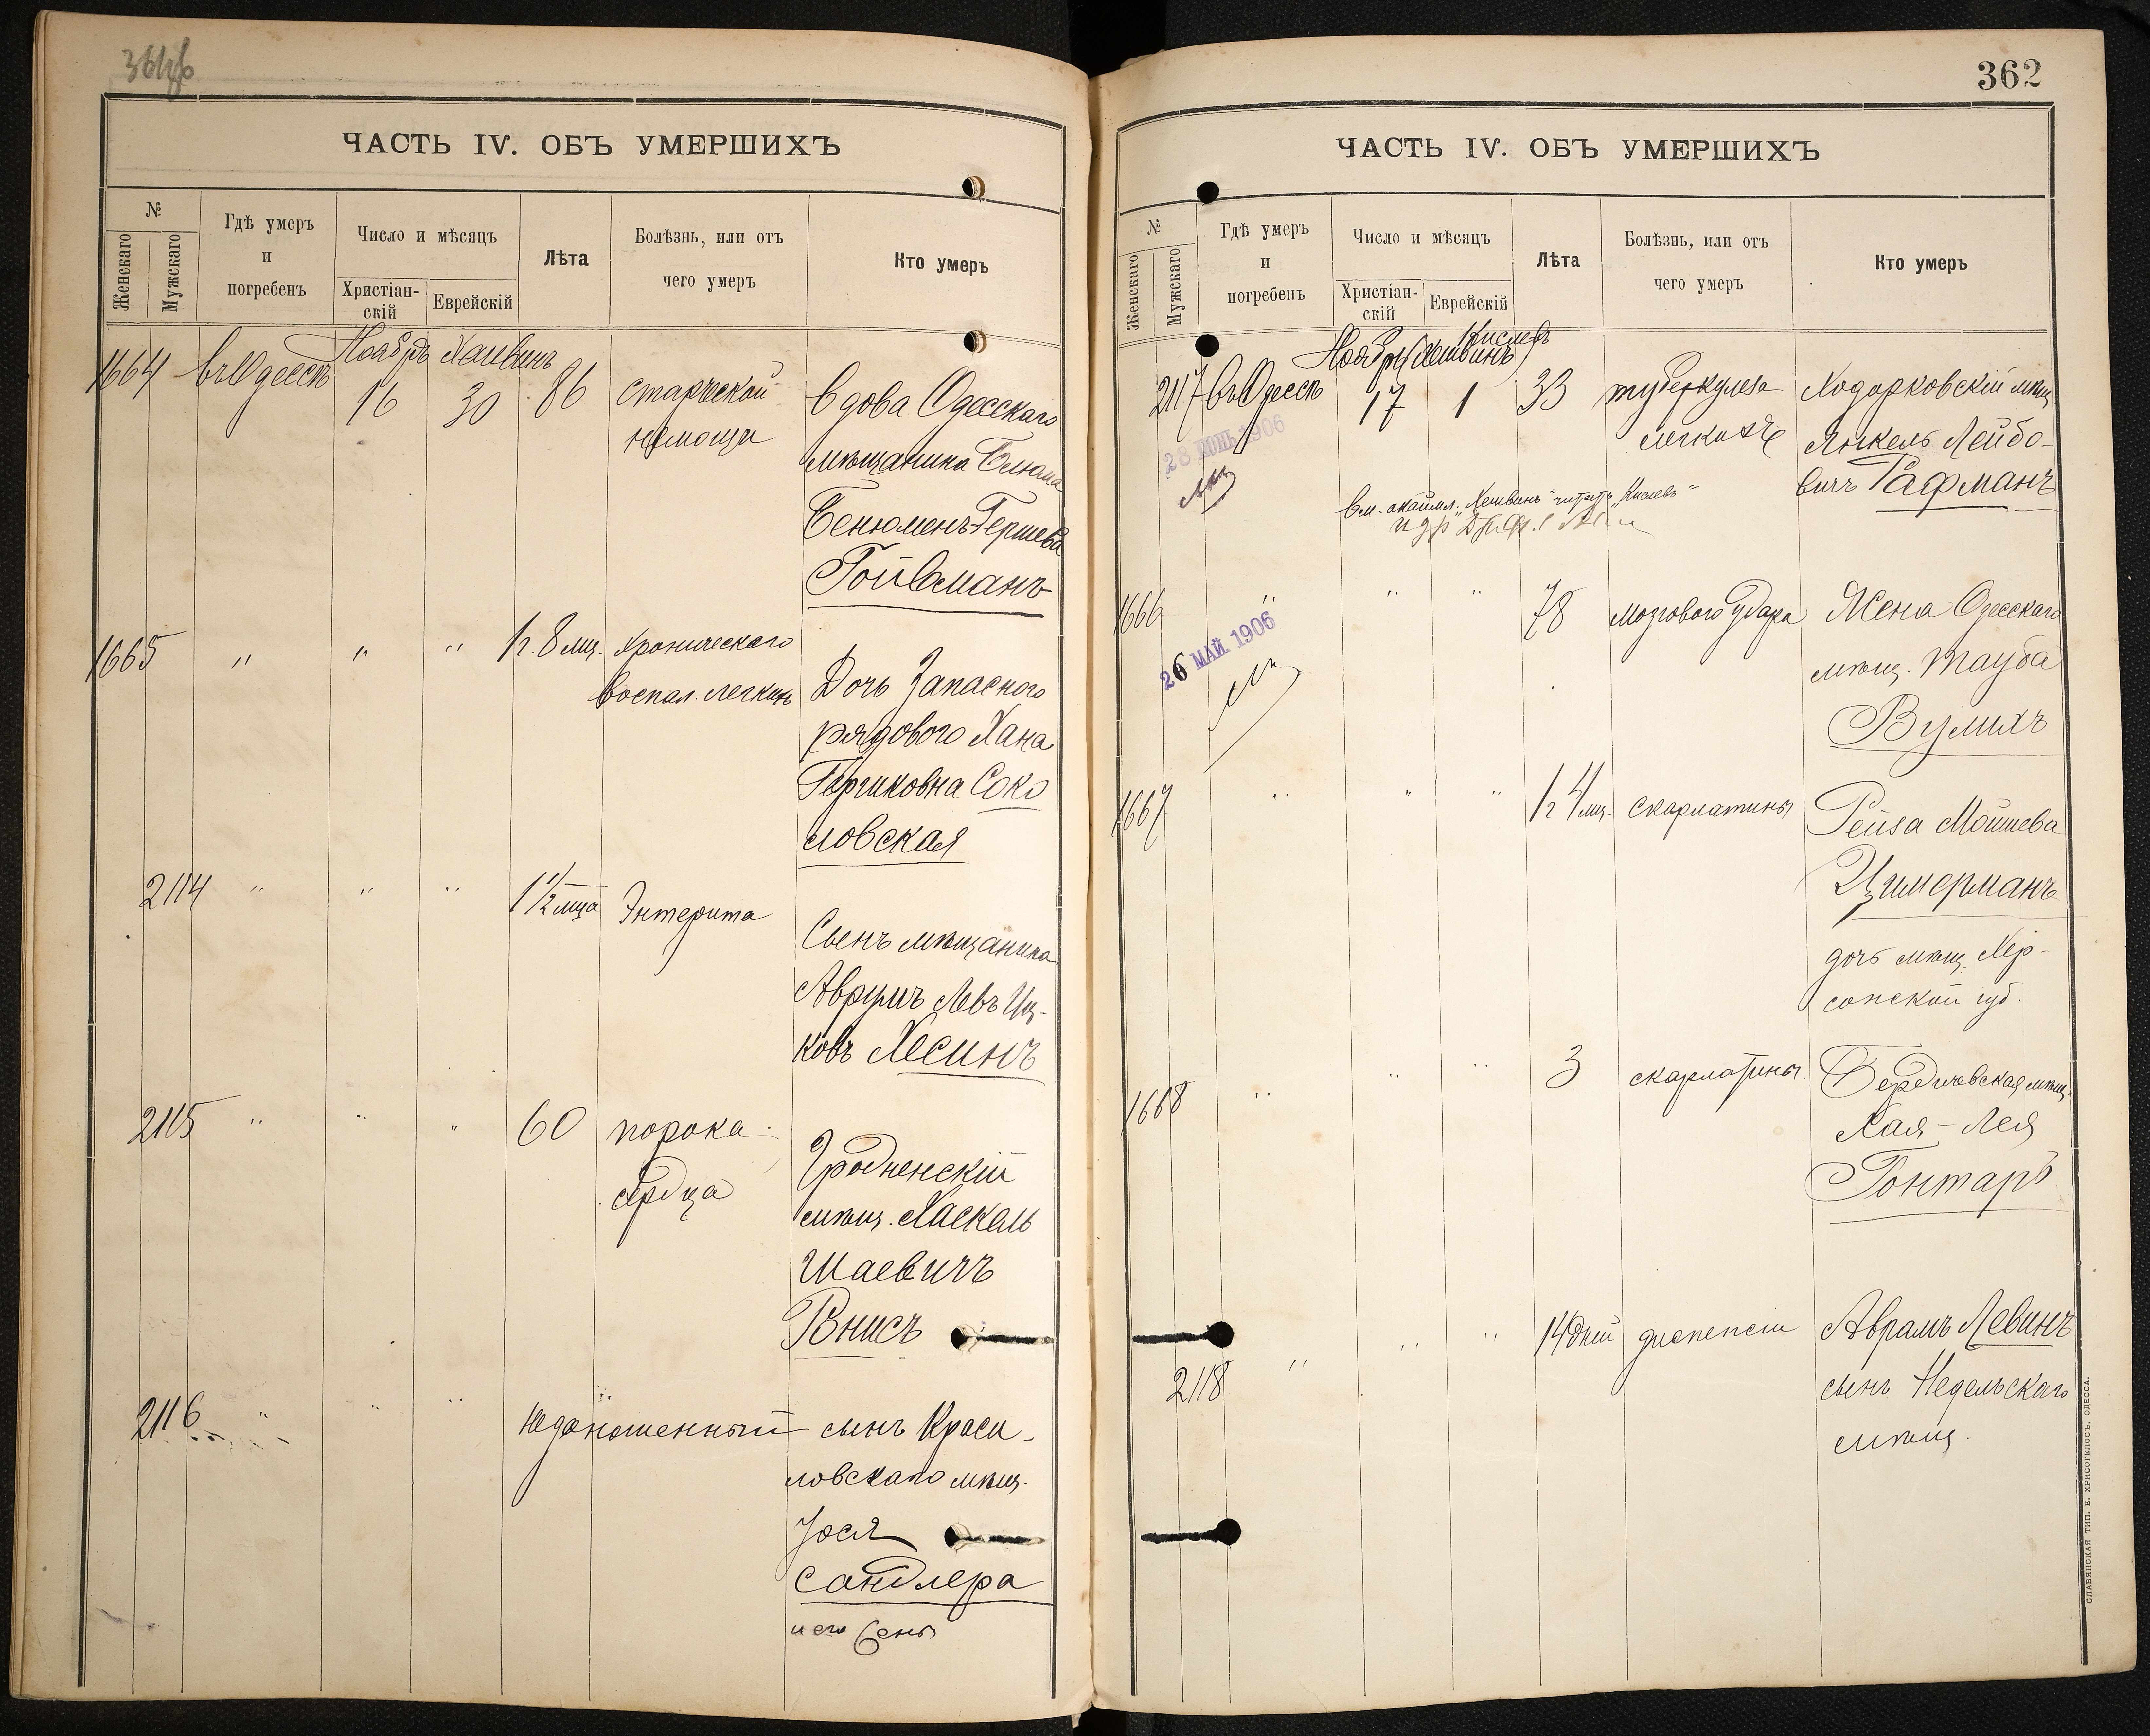 ЧАСТЬ IV. ОБЪ УМЕРШИХЪ
№
Женскаго
Мужскаго
Гдѣ умеръ
и
погребенъ
Число и мѣсяцъ
Христіан-
скій
Еврейскій
Лѣта
Болѣзнь, или отъ
чего умеръ
Кто умеръ
Ноябрь Хешвинъ
1664 въ Одессѣ 16 30 86 старческой вдова Одесскаго
немощи мѣщанина Блюма
Бенюменъ-Гершева
Гойвманъ
1665 " " " 1 г. 8 мц. хроническаго
воспал. легкихъ Дочь запаснаго
рядового Хана
Гершковна Соко
ловская
2114 " " " 1 1/2 мца Энтерита
Сынъ мѣщанина
Аврумъ Левъ Иц-
ковъ Хесинъ
2115 " " " 60 порока
сердца
Гродненскій
мѣщ. Хаскель
Шаевичъ
Внисъ
2116 " " " недоношенный сынъ Краси-
ловскаго мѣщ.
Іося
Сандлера
362
ЧАСТЬ IV. ОБЪ УМЕРШИХЪ
№
Женскаго
Мужскаго
Гдѣ умеръ
и
погребенъ
Число и мѣсяцъ
Христіан-
скій
Еврейскій
Лѣта
Болѣзнь, или отъ
чего умеръ
Кто умеръ
Кислевъ
Ноябрь (Хешвинъ)
2117 въ Одессѣ 17 1 33 туберкулеза Ходорковскій мѣщ.
легкихъ Янкель Лейбо-
вичъ Гафманъ
28 ІЮНЬ 1906
Вм. окаймл. „Хешвинъ" читать „Кислевъ"
1666 " " " 78 мозгового удара Жена Одесскаго
мѣщ. Тауба
Вулихъ
26 МАЙ 1906
1667 " " " 1 г 4 мц. скарлатины Рейза Мошкова
Цимерманъ
дочь мѣщ. Хер-
сонской губ.
1668 " " " 3 скарлатины Бердичевская мѣщ.
Хая-Лея
Гонтаръ
2118 " " " 14 дней диспепсіи Аврамъ Левинъ
сынъ Недельскаго
мѣщ.
СЛАВЯНСКАЯ ТИП. Е. ХРИСОГЕЛОСЪ, ОДЕССА.